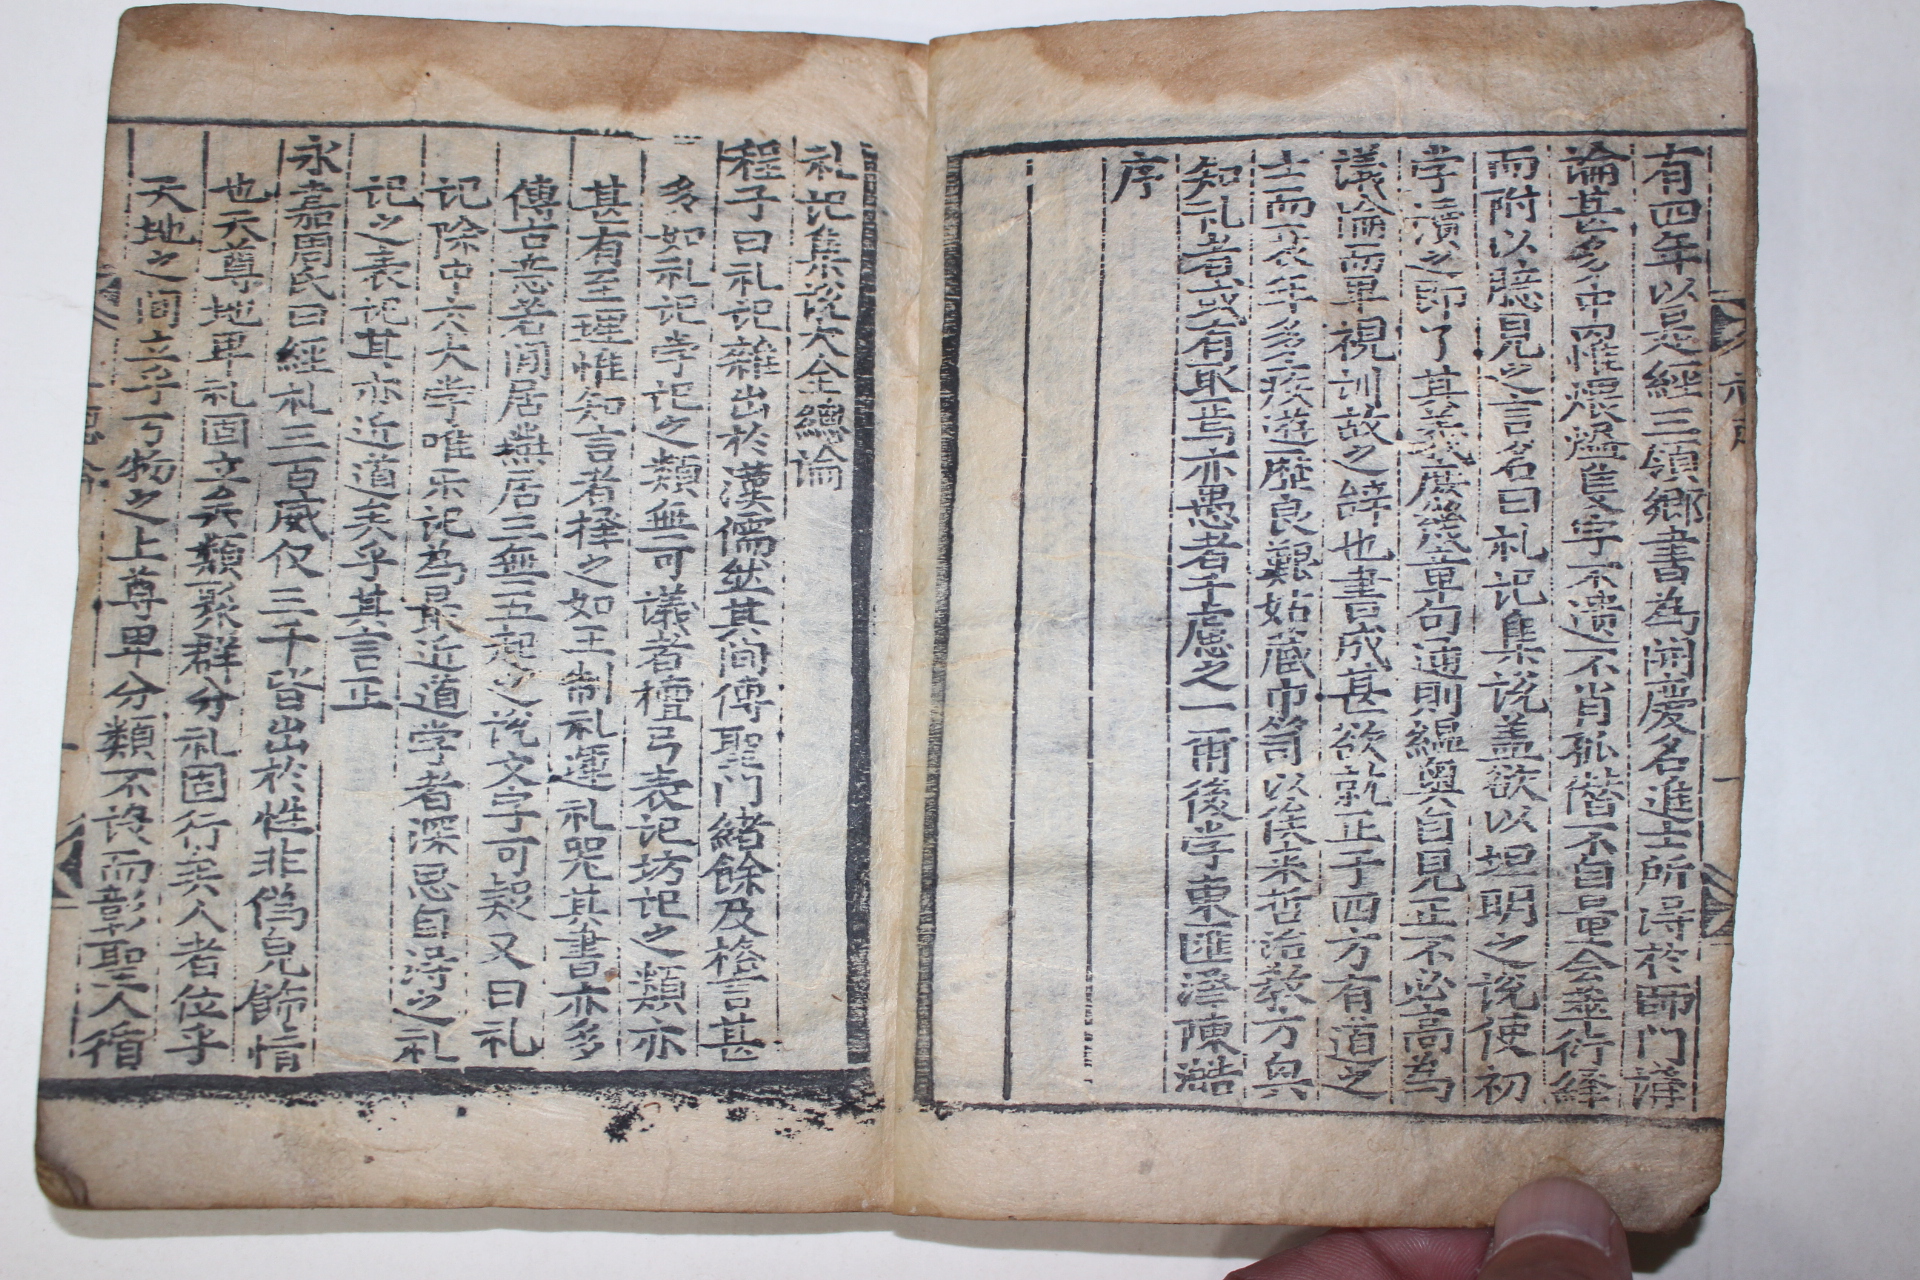 有四年以是經三領鄉書為開慶名進士所得於師門講
論甚多中罹煨燼隻字不遺不肖孤僣不自量会萃衍繹
而附以臆見之言名曰礼記集説盖欲以坦明之説使初
学讀之即了其義庶幾章句通則縕奥自見正不必高為
議論而卑視訓故之辞也書成甚欲就正于四方有道之
士而衰年多疾遊歴良艱姑藏巾笥以俟来哲治教方興
知礼者或有取焉亦愚者千慮之一甭後学東匯澤陳澔
序
礼記集説大全總論
程子曰礼記雜出於漢儒然其間傳聖門緒餘及格言甚
多如礼記学記之類無可議者檀弓表記坊記之類亦
甚有至理惟知言者擇之如王制礼運礼器其書亦多
傳古意若閒居燕居三無五起之説文字可疑又曰礼
記除中六大学唯乐記為最近道学者深思自得之礼
記之表記其亦近道矣乎其言正
永嘉周氏曰經礼三百威仪三千皆出於性非偽皃飾情
也天尊地卑礼固立矣類聚群分礼固行矣人者位乎
天地之間立乎万物之上尊卑分類不設而彰聖人循
礼序
一
總論